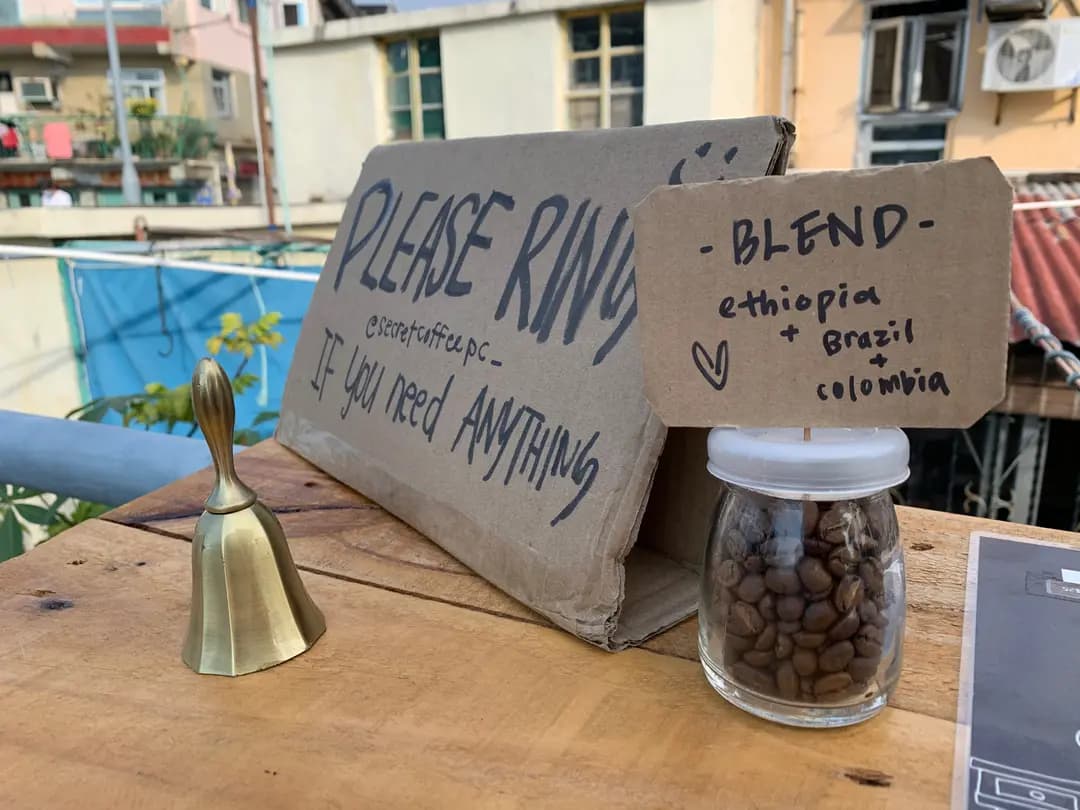 PLEASE RING
@secretcoffeepc_
IF you need ANYTHING
- BLEND -
ethiopia
+ Brazil
+
colombia